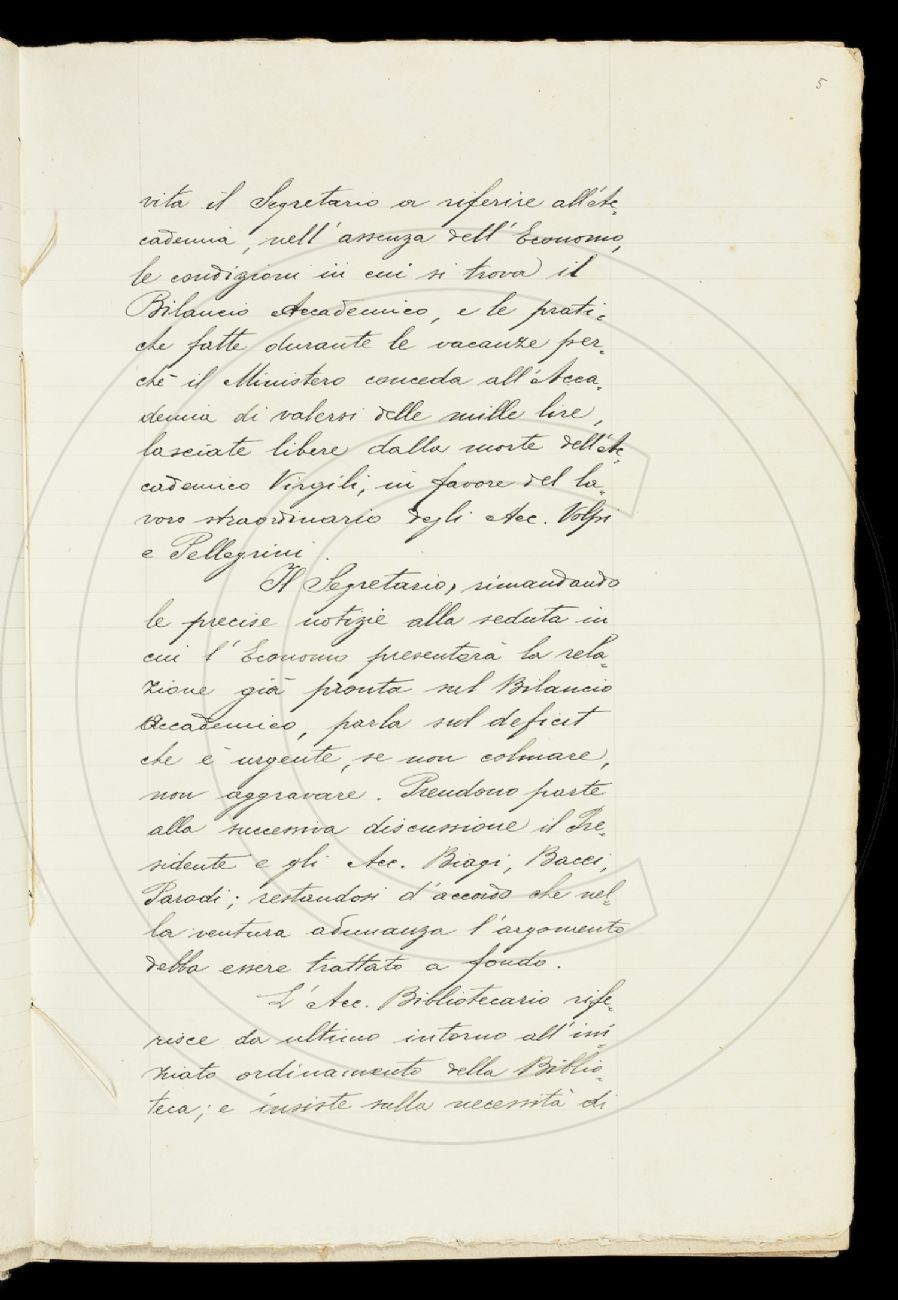 5
vita il Segretario a riferire all'Ac-
cademia, nell'assenza dell'Economo,
le condizioni in cui si trova il
Bilancio Accademico, e le prati-
che fatte durante le vacanze per-
chè il Ministero conceda all'Acca-
demia di valersi delle mille lire,
lasciate libere dalla morte dell'Ac-
cademico Virgili, in favore del la-
voro straordinario degli Acc. Volpi
e Pellegrini.
Il Segretario, rimandando
le precise notizie alla seduta in
cui l'Economo presenterà la rela-
zione già pronta sul Bilancio
Accademico, parla sul deficit
che è urgente, se non colmare,
non aggravare. Prendono parte
alla successiva discussione il Pre-
sidente e gli Acc. Biagi, Bacci,
Parodi; restandosi d'accordo che nel-
la ventura adunanza l'argomento
debba essere trattato a fondo.
L'Acc. Bibliotecario rife-
risce da ultimo intorno all'ini-
ziato ordinamento della Biblio-
teca; e insiste sulla necessità di